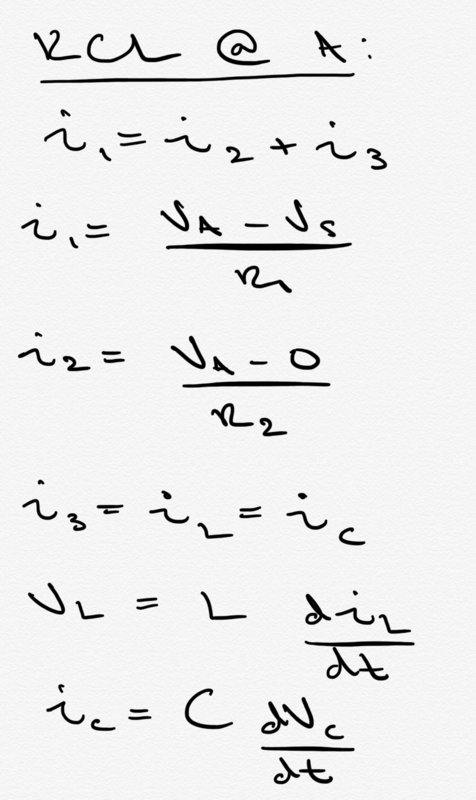 KCL @ A:
i₁ = i₂ + i₃
i₁ = (V_A - V_S) / R₁
i₂ = (V_A - 0) / R₂
i₃ = i_L = i_C
V_L = L di_L/dt
i_C = C dV_C/dt